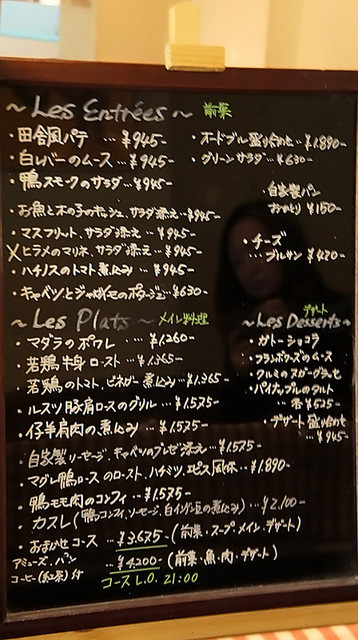 ~ Les Entrées ~ 前菜
・田舎風パテ … ¥945-
・白レバーのムース … ¥945-
・鴨スモークのサラダ … ¥945-
・お魚と木の子の サラダ添え … ¥945-
・マスフリット、サラダ添え … ¥945-
X ヒラメのマリネ、サラダ添え … ¥945-
・ハチノスのトマト煮込み … ¥945-
・キャベツとジャガイモのポタージュ … ¥630-
・オードブル盛り合わせ … ¥1,890-
・グリーンサラダ … ¥630-
・自家製パン
おかわり ¥150-
・チーズ
… ブルサン ¥420-
~ Les Plats ~ メイン料理
・マダラのポワレ … ¥1,260-
・若鶏半身ロースト … ¥1,365-
・若鶏のトマト、ビネガー煮込み … ¥1,365-
・ルスツ豚肩ロースのグリル … ¥1,575-
・仔羊肩肉の煮込み … ¥1,575-
・自家製ソーセージ、キャベツのブレゼ添え … ¥1,575-
・マグレ鴨ロースのロースト、ハチミツ、ピス風味 … ¥1,890-
・鴨モモ肉のコンフィ … ¥1,575-
・カスレ(鴨コンフィ、ソーセージ、白インゲン豆の煮込み) … ¥2,100-
・おまかせコース … ¥3,675- (前菜・スープ・メイン・デザート)
… ¥4,200- (前菜・魚・肉・デザート)
アミューズ、パン
コーヒー(紅茶)付
コース L.O. 21:00
デザート
~ Les Desserts ~
・ガトーショコラ
・フランボワーズのムース
・クルミのヌガーグラッセ
・パイナップルのタルト
各 ¥525-
・デザート盛り合わせ
… ¥945-